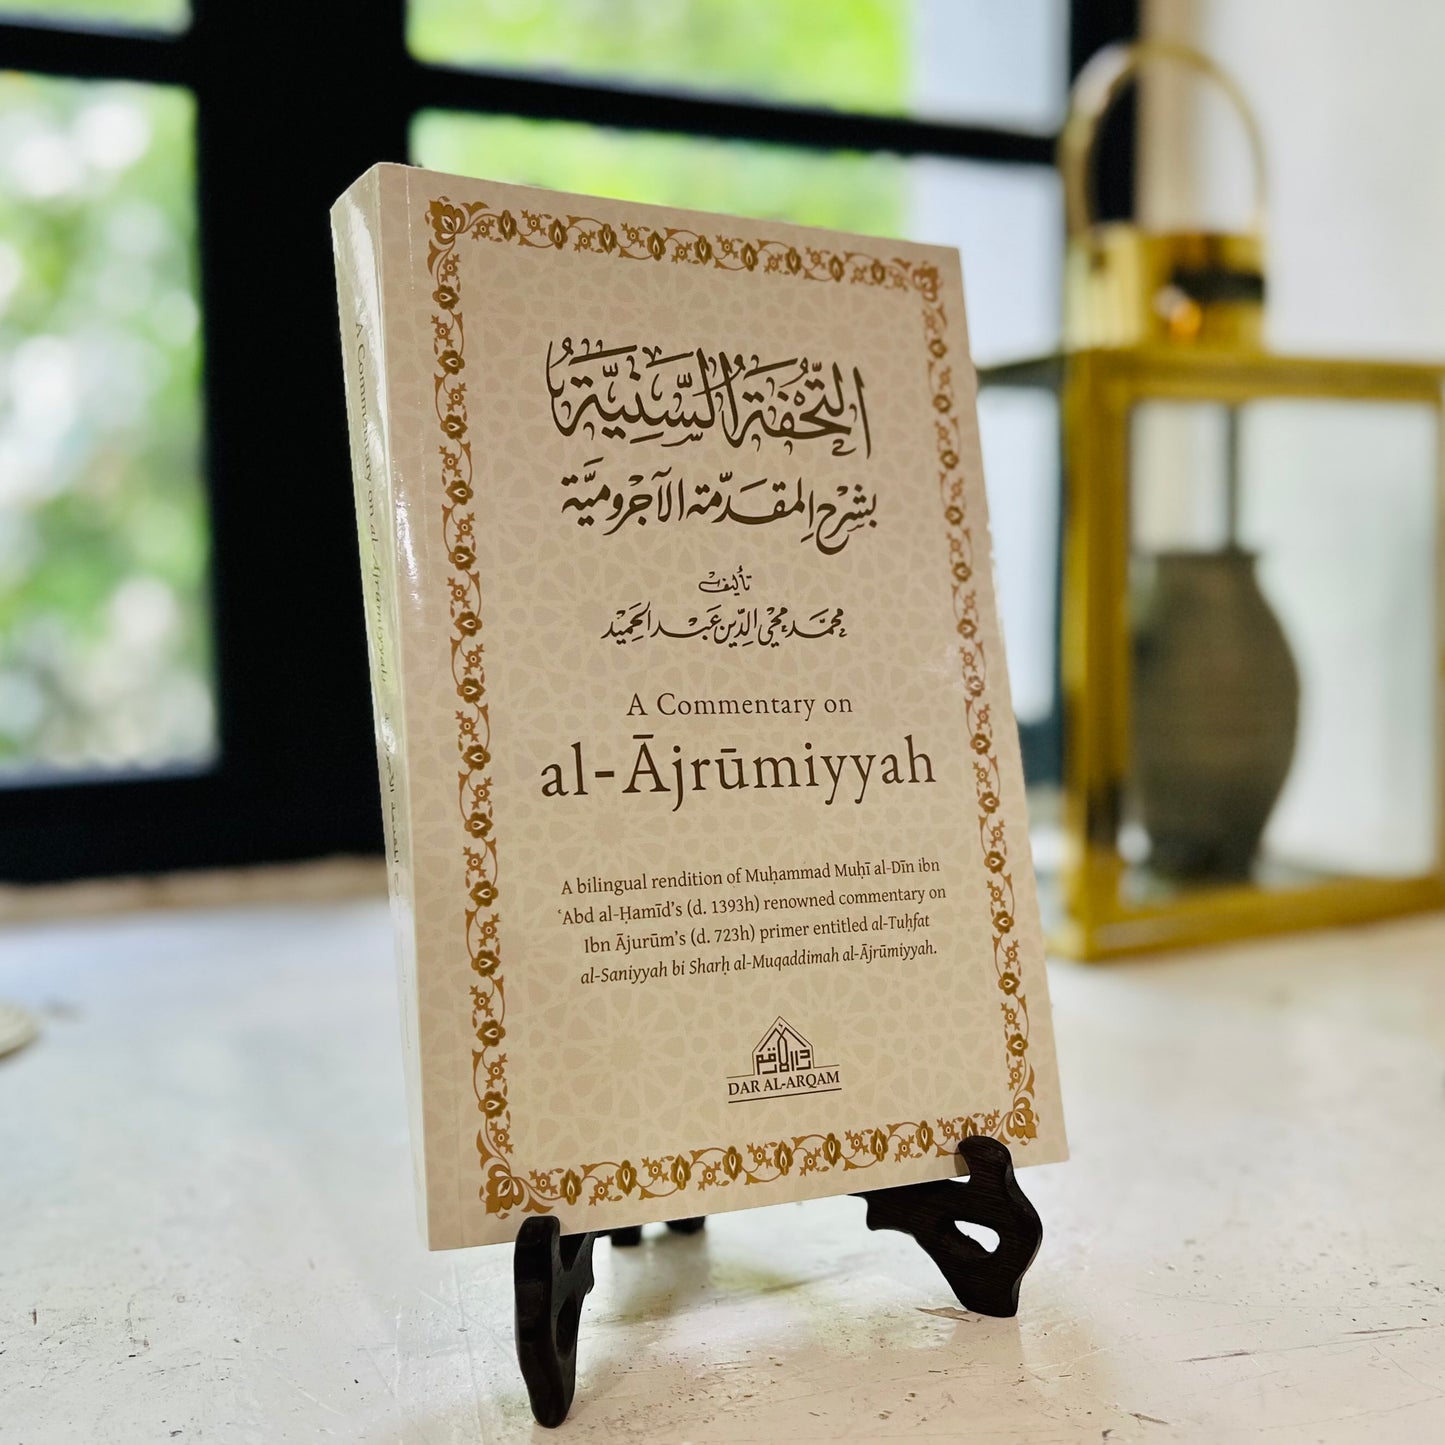 التُّحْفَةُ السَّنِيَّةُ
بشَرْحِ المقَدّمَة الآجُروميَّة
تأليف
محمّد محيي الدّين عَبْد الحَميْد
A Commentary on
al-Ājrūmiyyah
A bilingual rendition of Muḥammad Muḥī al-Dīn ibn
ʿAbd al-Ḥamīd’s (d. 1393h) renowned commentary on
Ibn Ājurūm’s (d. 723h) primer entitled al-Tuḥfat
al-Saniyyah bi Sharḥ al-Muqaddimah al-Ājrūmiyyah.
دار الأرقم
DAR AL-ARQAM
A Commentary on al-Ājrūmiyyah